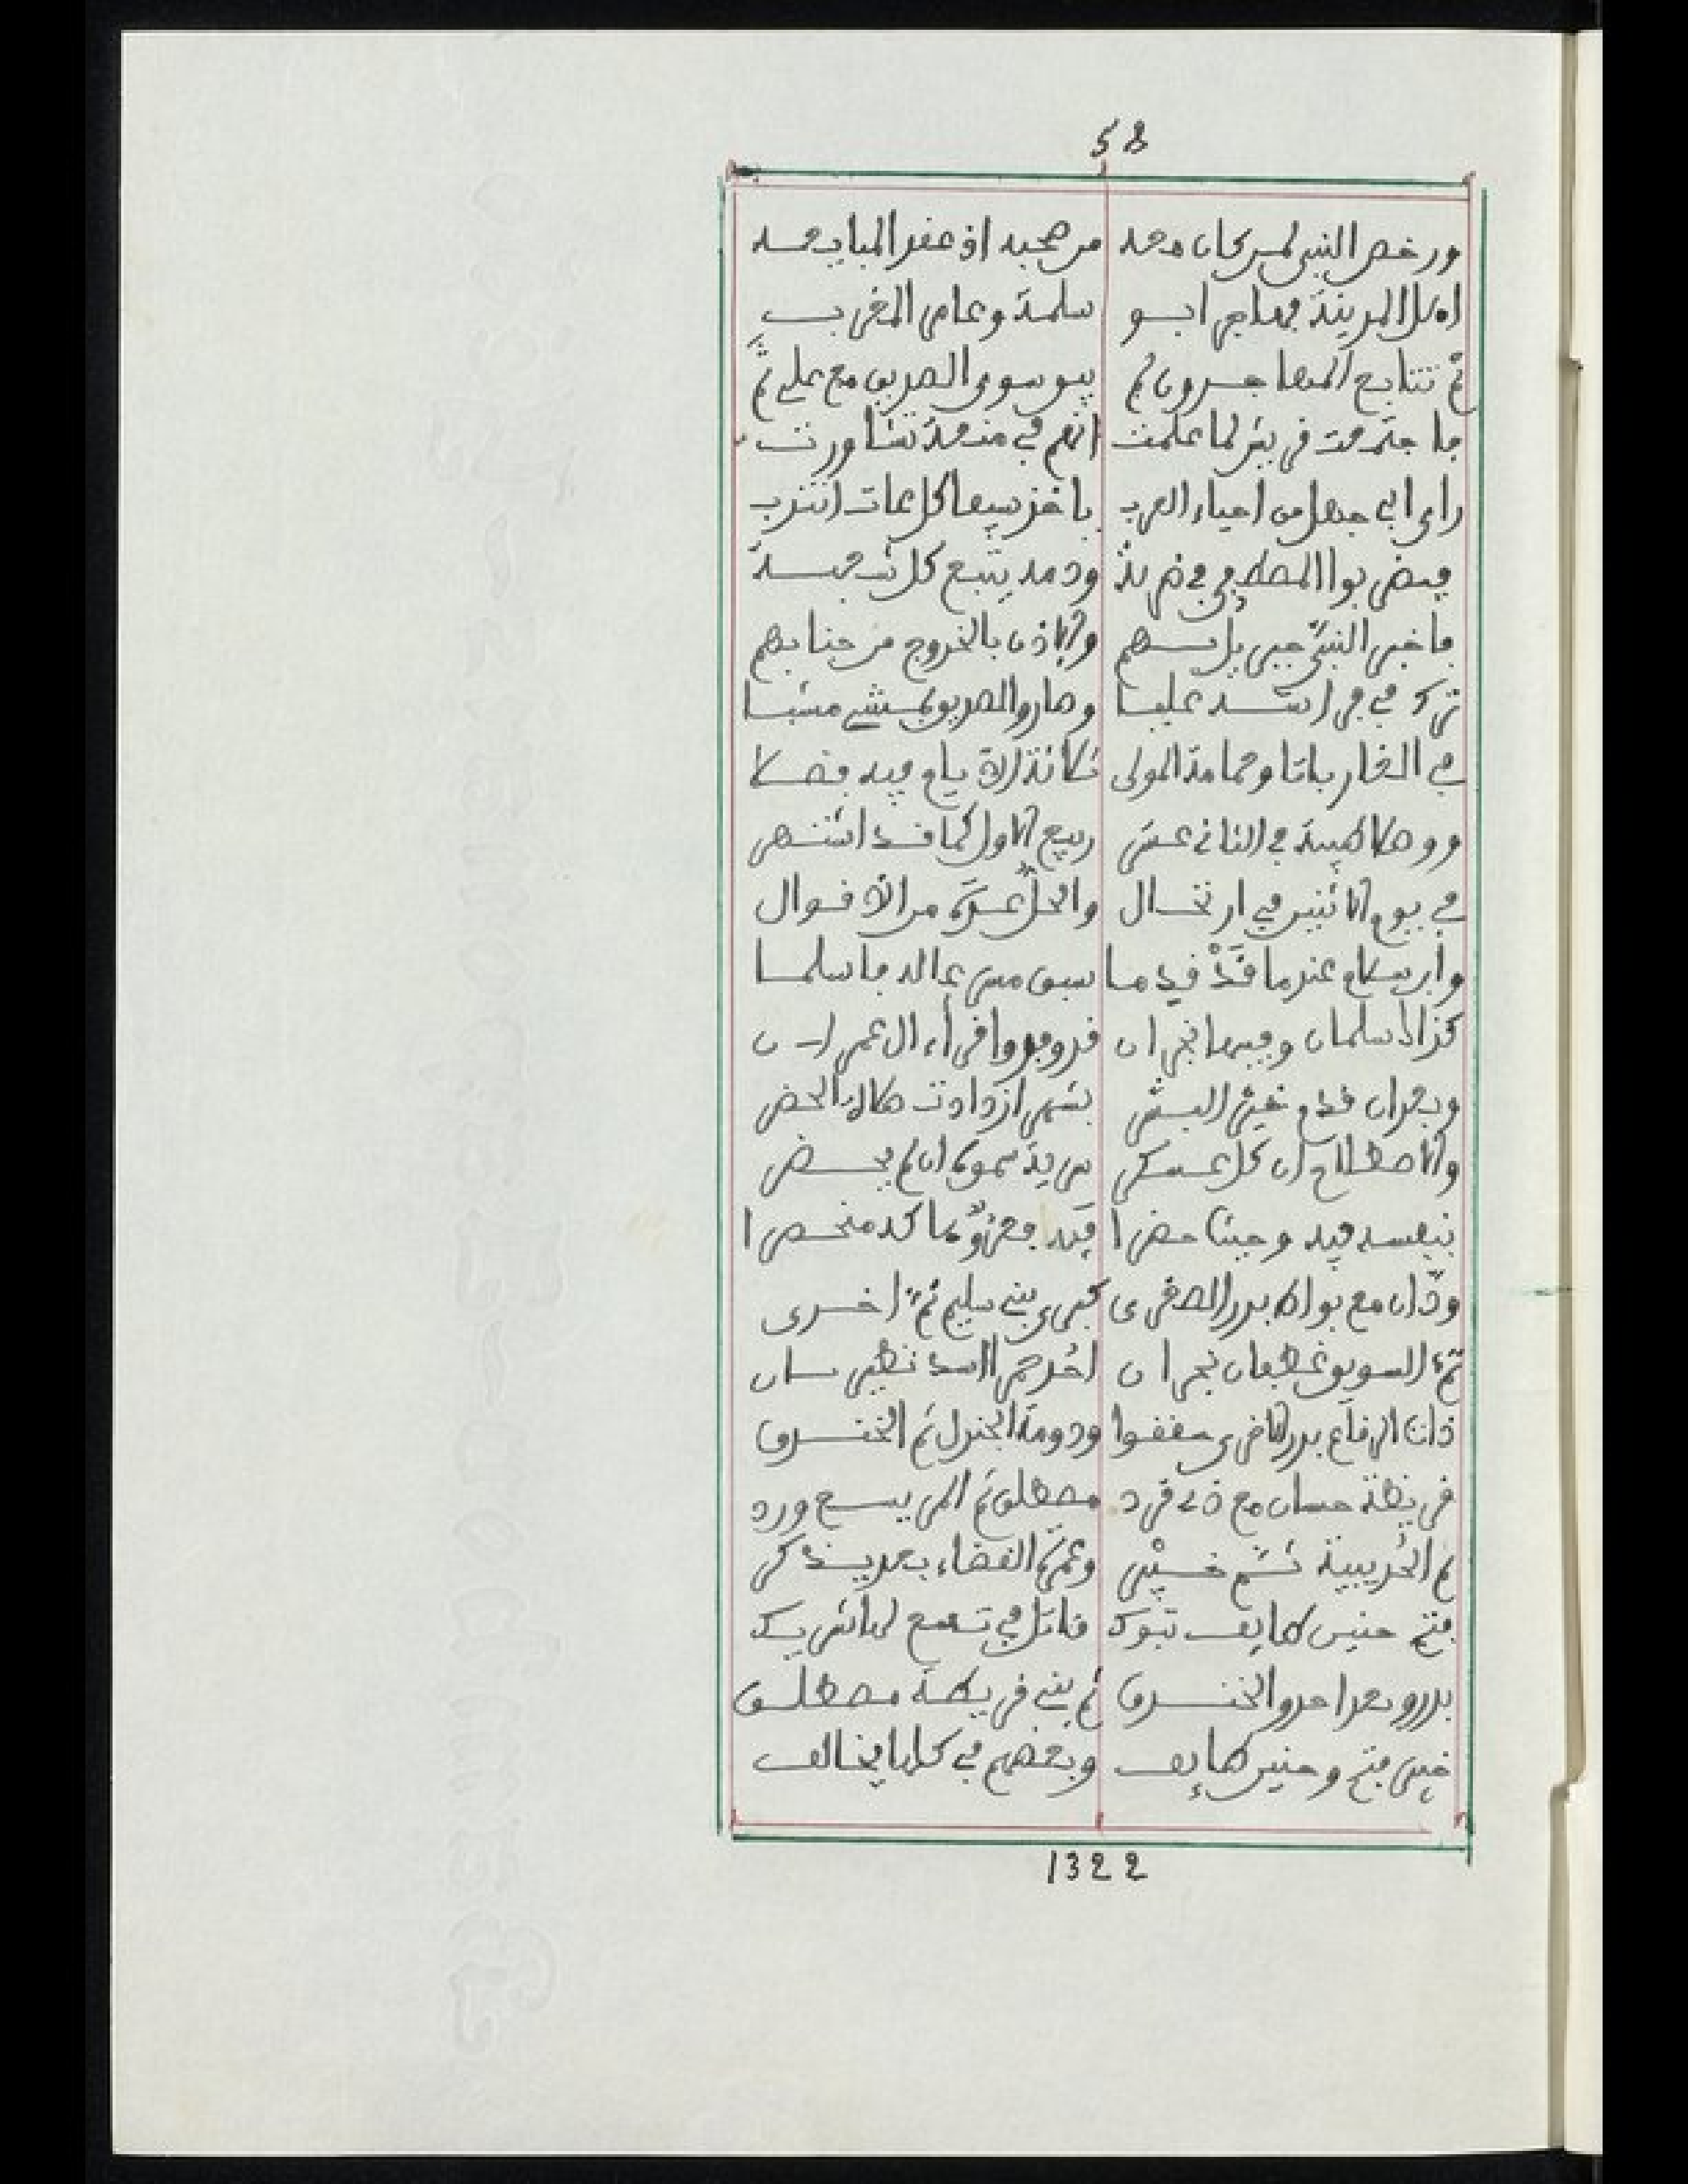 58
ورخص النبي لمن كان معه من صحبه اذ عقد المبايعه
اهل المدينة فهاجر ابو سلمة وعامر المغرب
ثم تتابع المهاجرون ثم يبق سوى الصديق مع علي ثم
فاجتمعت قريش لما علمت انهم في منعة تشاورت
راى ابي جهل من احياء العرب ياخذ سيفا كل عات انتدب
فيضربوا المصطفى في ضربة ودمه يتبع كل
فاخبر النبي جبريل بهم والاذن بالخروج من جنابهم
ترك في فراشه عليا وصار والصديق يمشي مشيا
في الغار باتا وحماه المولى ثلاثة الايام فيه فضلا
ووصلا طيبة في الثاني عشر ربيع الاول كما قد اشتهر
في يوم الاثنين في ارتحال والحل من الاقوال
وابن سلام عندما قد قدما سبق من عاله فاسلما
كذاك سلمان وفيها نجران قد وفدوا قراء ال عمران
وبعد ان قدم خير البشر بشهر ازدادت صلاة الحضر
والاصطلاح ان كل عسكر سرية سموه ان لم يحضر
بنفسه فيه وحيثا حضرا فيه فغزو ما كه منحصرا
ودان مع بواط بدر الصغرى كبرى بني سليم ثم اخرى
ثم السويق غطفان نجران احد حمر الاسد نظيرسان
ذات الرقاع بدر الاخرى حققوا ودومة الجندل ثم الخندق
قريظة حسان مع ذي قرد مصطلق ثم المريسع ورد
ثم الحديبية ثم خيبر وعمرة القضاء بعد يذكر
فتح حنين طايف تبوك قاتل في تسع لها شريك
بدر وبعد احد والخندق ثم بني قريظة مصطلق
خيبر فتح وحنين طايف وبعضهم في كلها يخالف
1322